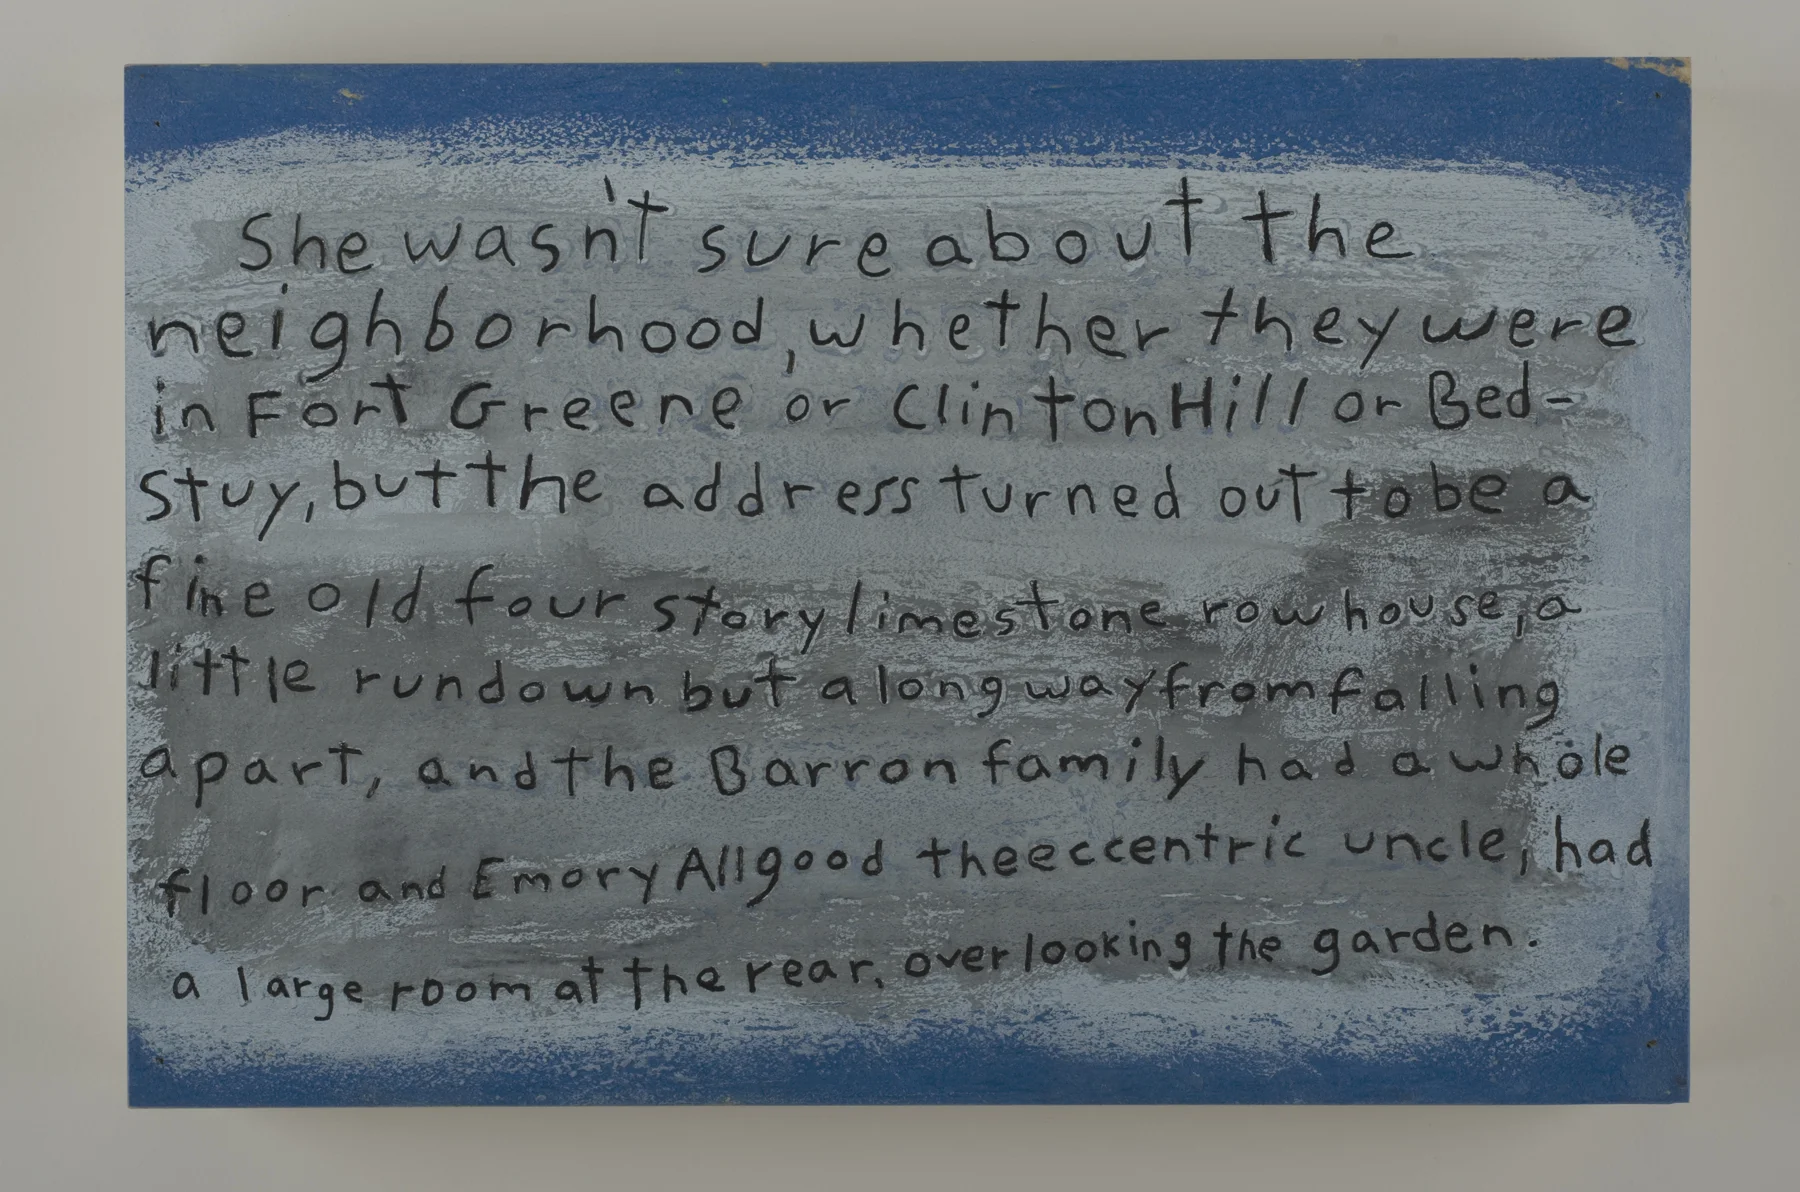 She wasn't sure about the
neighborhood, whether they were
in Fort Greene or Clinton Hill or Bed-
Stuy, but the address turned out to be a
fine old four story limestone row house, a
little rundown but a long way from falling
apart, and the Barron family had a whole
floor and Emory Allgood the eccentric uncle, had
a large room at the rear, overlooking the garden.